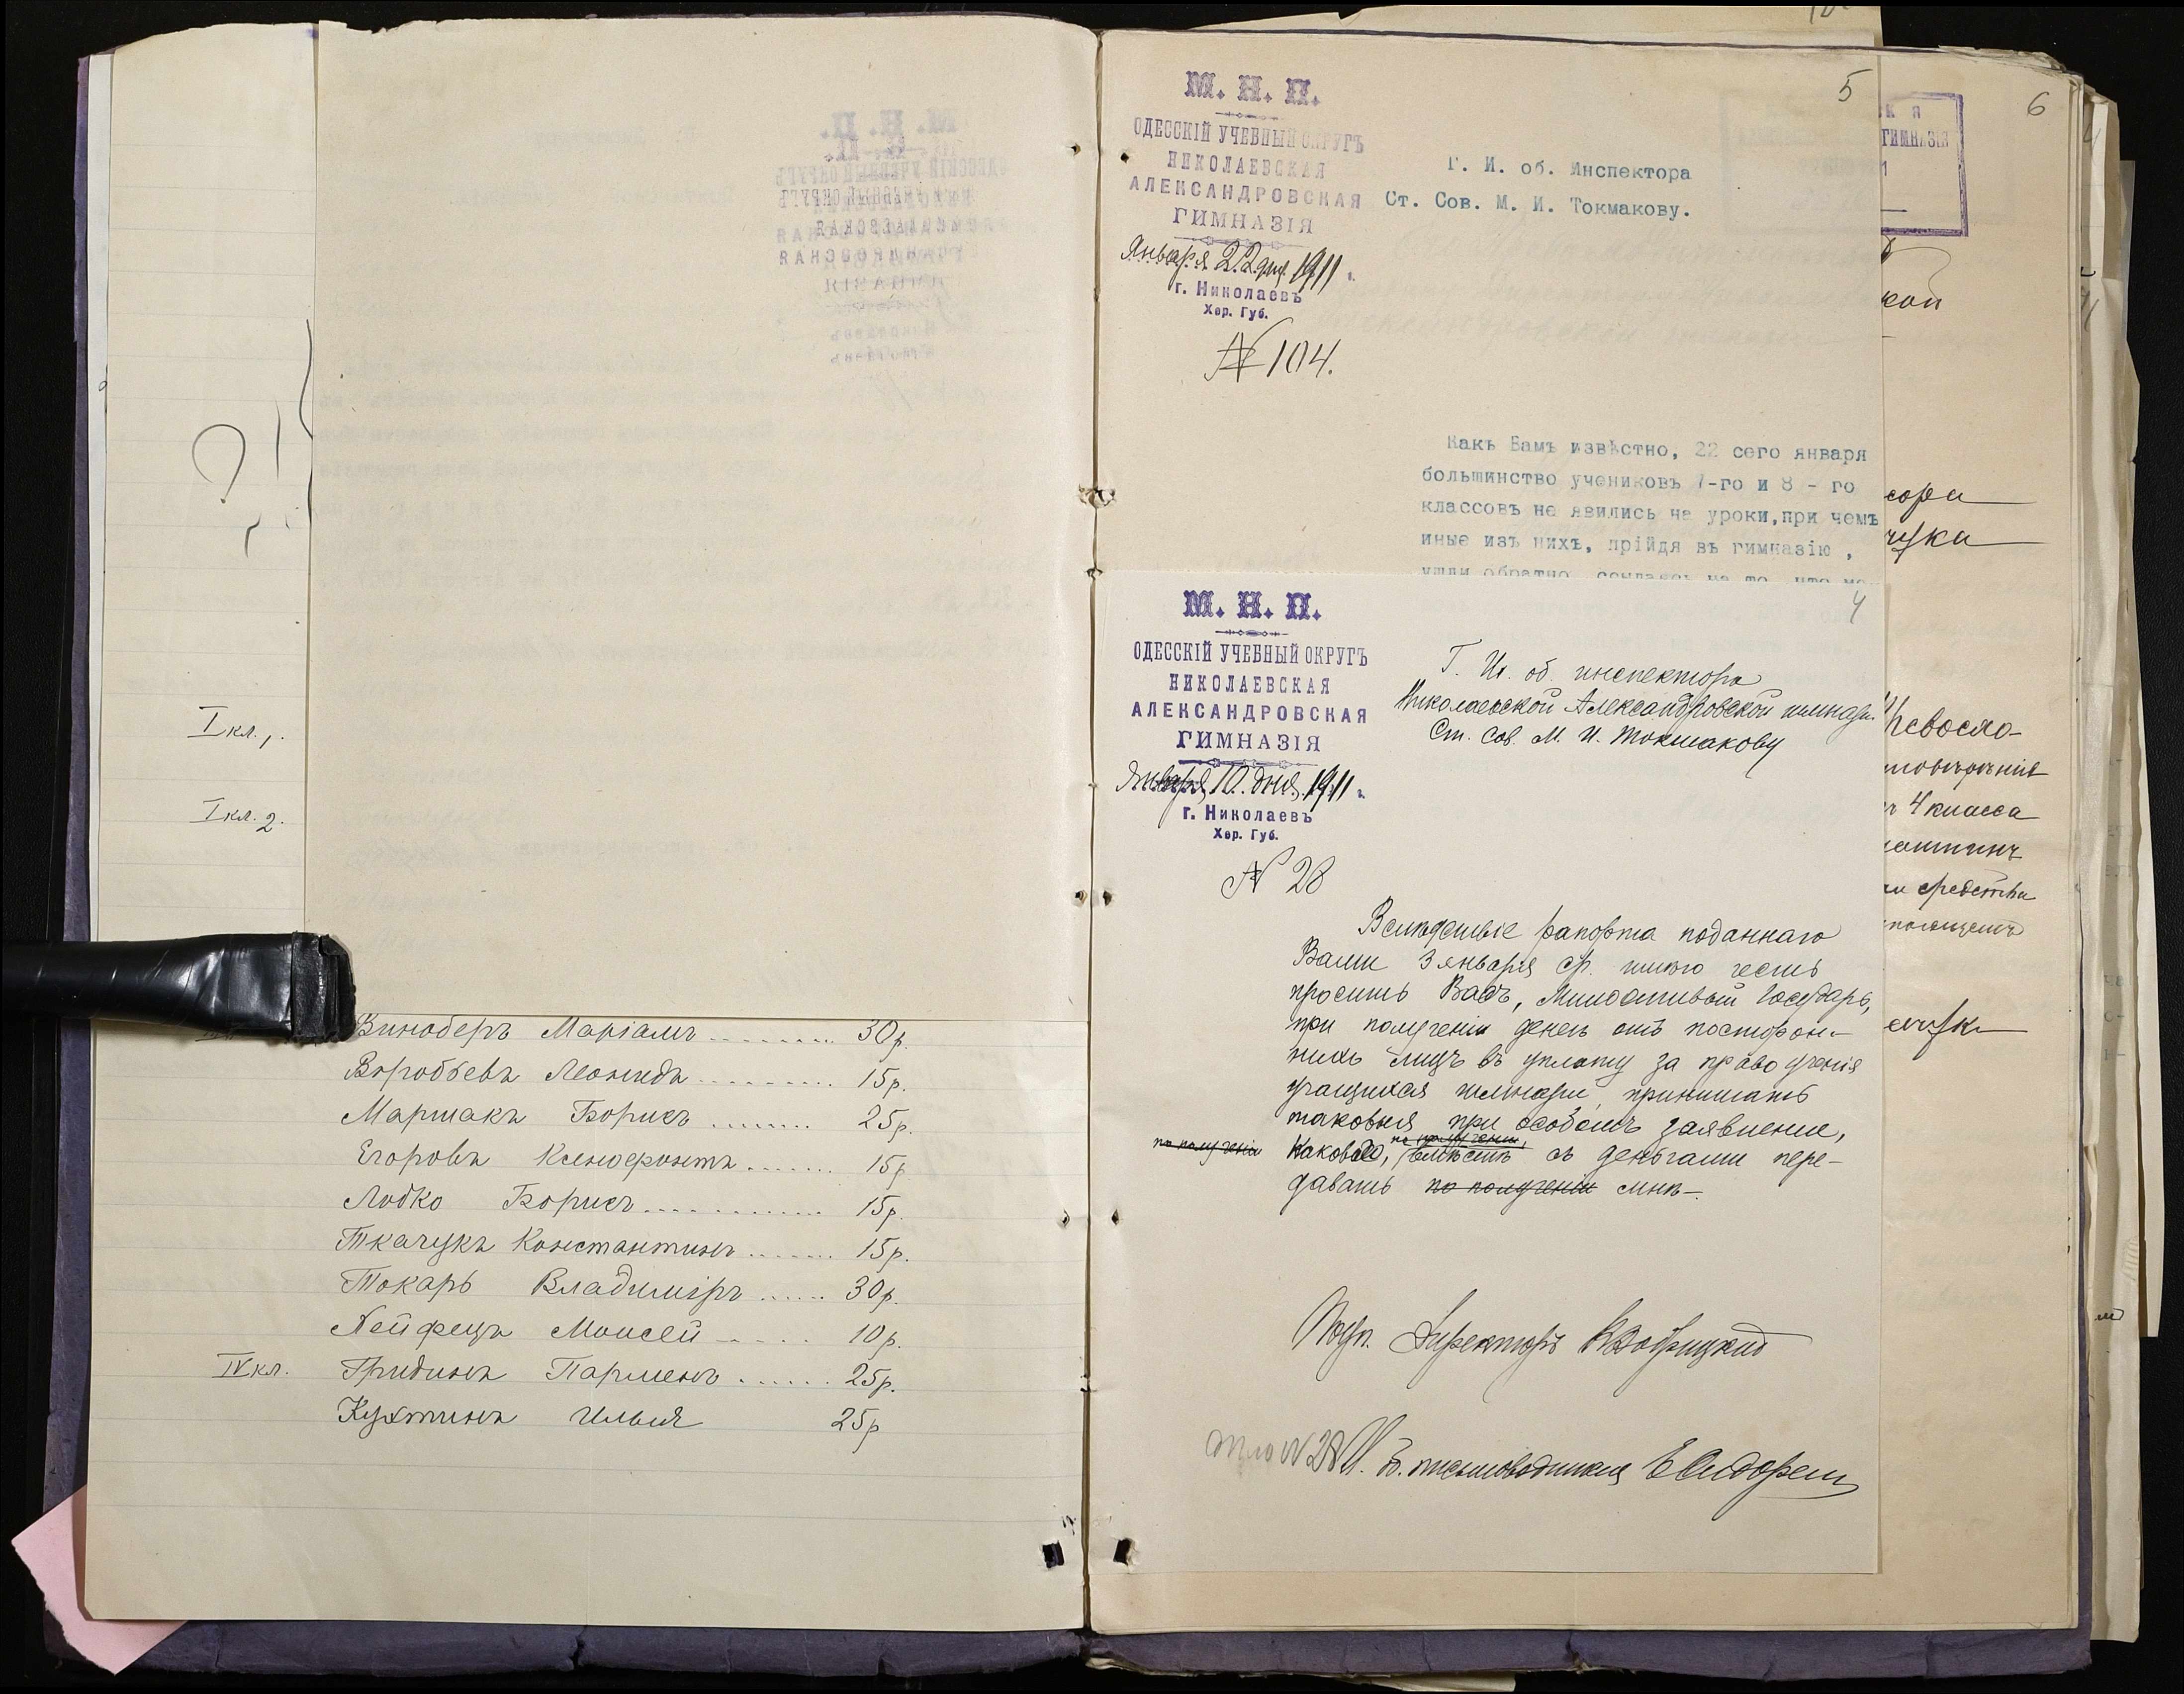 I кл. 1.
I кл. 2.
Виноберъ Маріамъ ......... 30 р.
Воробьевъ Леонидъ .......... 15 р.
Маршакъ Борисъ ........ 25 р.
Егоровъ Ксенофонтъ ....... 15 р.
Лобко Борисъ ............ 15 р.
Ткачукъ Константинъ ....... 15 р.
Токарь Владиміръ ...... 30 р.
Хейфецъ Моисей ..... 10 р.
IV кл. Гридинъ Парменъ ...... 25 р.
Кухтинъ Илья 25 р
5
М. Н. П.
ОДЕССКІЙ УЧЕБНЫЙ ОКРУГЪ
НИКОЛАЕВСКАЯ
АЛЕКСАНДРОВСКАЯ
ГИМНАЗІЯ
Января 22 дня 1911 г.
г. Николаевъ
Хер. Губ.
№ 104.
Г. И. об. Инспектора
Ст. Сов. М. И. Токмакову.
Какъ Вамъ извѣстно, 22 сего января
большинство учениковъ 7-го и 8 - го
классовъ не явились на уроки, при чемъ
иные изъ нихъ, прійдя въ гимназію ,
ушли обратно, ссылаясь на то, что
4
М. Н. П.
ОДЕССКІЙ УЧЕБНЫЙ ОКРУГЪ
НИКОЛАЕВСКАЯ
АЛЕКСАНДРОВСКАЯ
ГИМНАЗІЯ
Января 10 дня 1911 г.
г. Николаевъ
Хер. Губ.
№ 28
Г. И. об. инспектора
Николаевской Александровской гимназіи
Ст. Сов. М. И. Токмакову
Вслѣдствіе рапорта поданнаго
Вами 3 января с/г. имѣю честь
просить Васъ, Милостивый Государь,
при полученіи денегъ отъ посторон-
нихъ лицъ въ уплату за право ученія
учащихся гимназіи, принимать
таковыя при особомъ заявленіи,
по полученіи
по полученіи,
каковое, вмѣстѣ съ деньгами пере-
давать по полученіи мнѣ.
Подп. Директоръ
И. об. письмоводителя
6
К Я
ГИМНАЗІЯ
кой
4 класса
средства